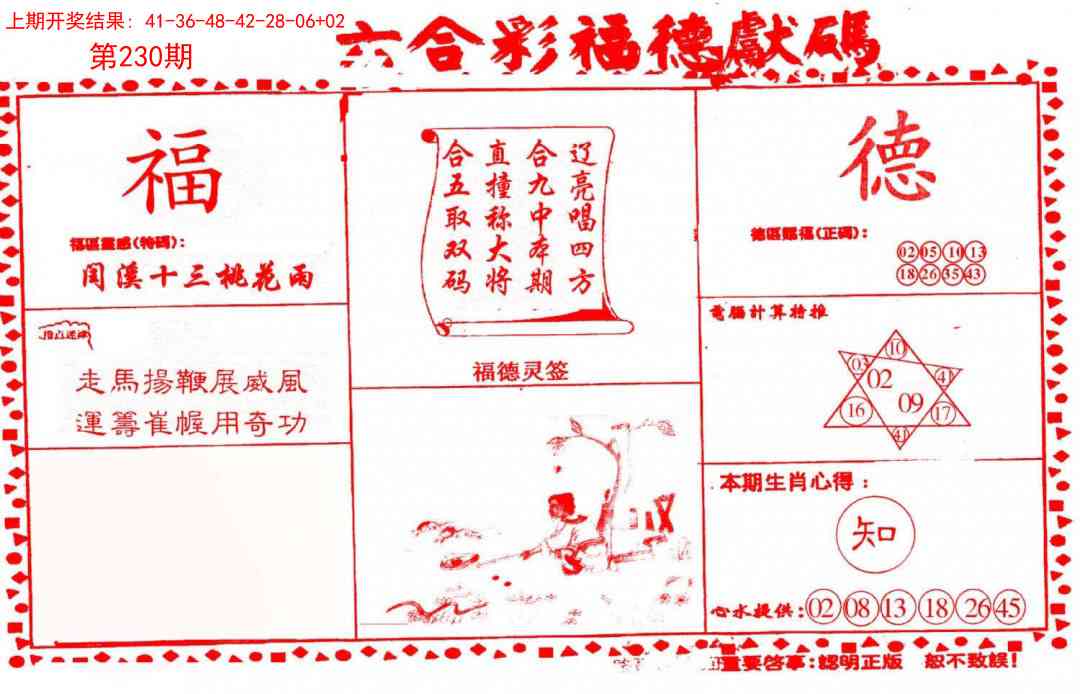 上期开奖结果：41-36-48-42-28-06+02
第230期
六合彩福德獻碼
福
福區靈感(特碼)：
閏溪十三桃花雨
指点迷津
走馬揚鞭展威風
運籌崔幄用奇功
辽亮唱四方
合九中本期
直撞称大将
合五取双码
福德灵签
德
德區賜福(正碼)：
02 05 10 13
18 26 35 43
電腦計算特推
10
03 41
02
09
16 17
41
本期生肖心得：
知
心水提供：02 08 13 18 26 45
重要啓事：認明正版 恕不致誤！